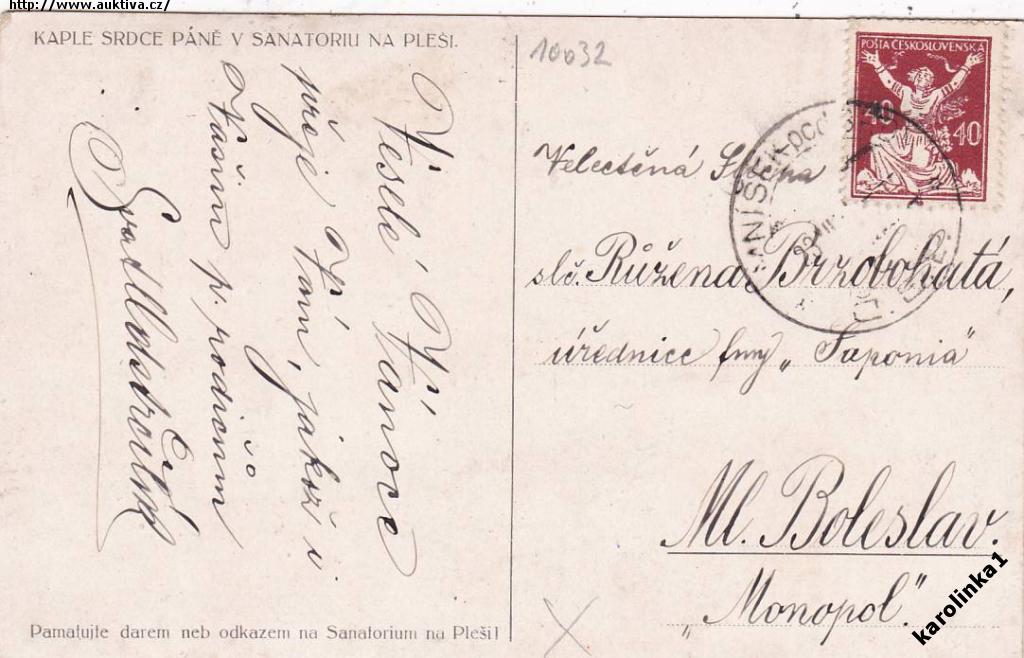 http://www.auktiva.cz/
KAPLE SRDCE PÁNĚ V SANATORIU NA PLEŠI.
Veselé Vánoce
přeje Vám, jakož i
Vašim p. rodičům
Pamatujte darem neb odkazem na Sanatorium na Pleši!
10032
POŠTA ČESKOSLOVENSKÁ
40 40
Velectěná Slečna
slč. Růžena Brzobohatá,
úřednice fmy „Saponia"
Ml. Boleslav.
„Monopol."
karolinka1